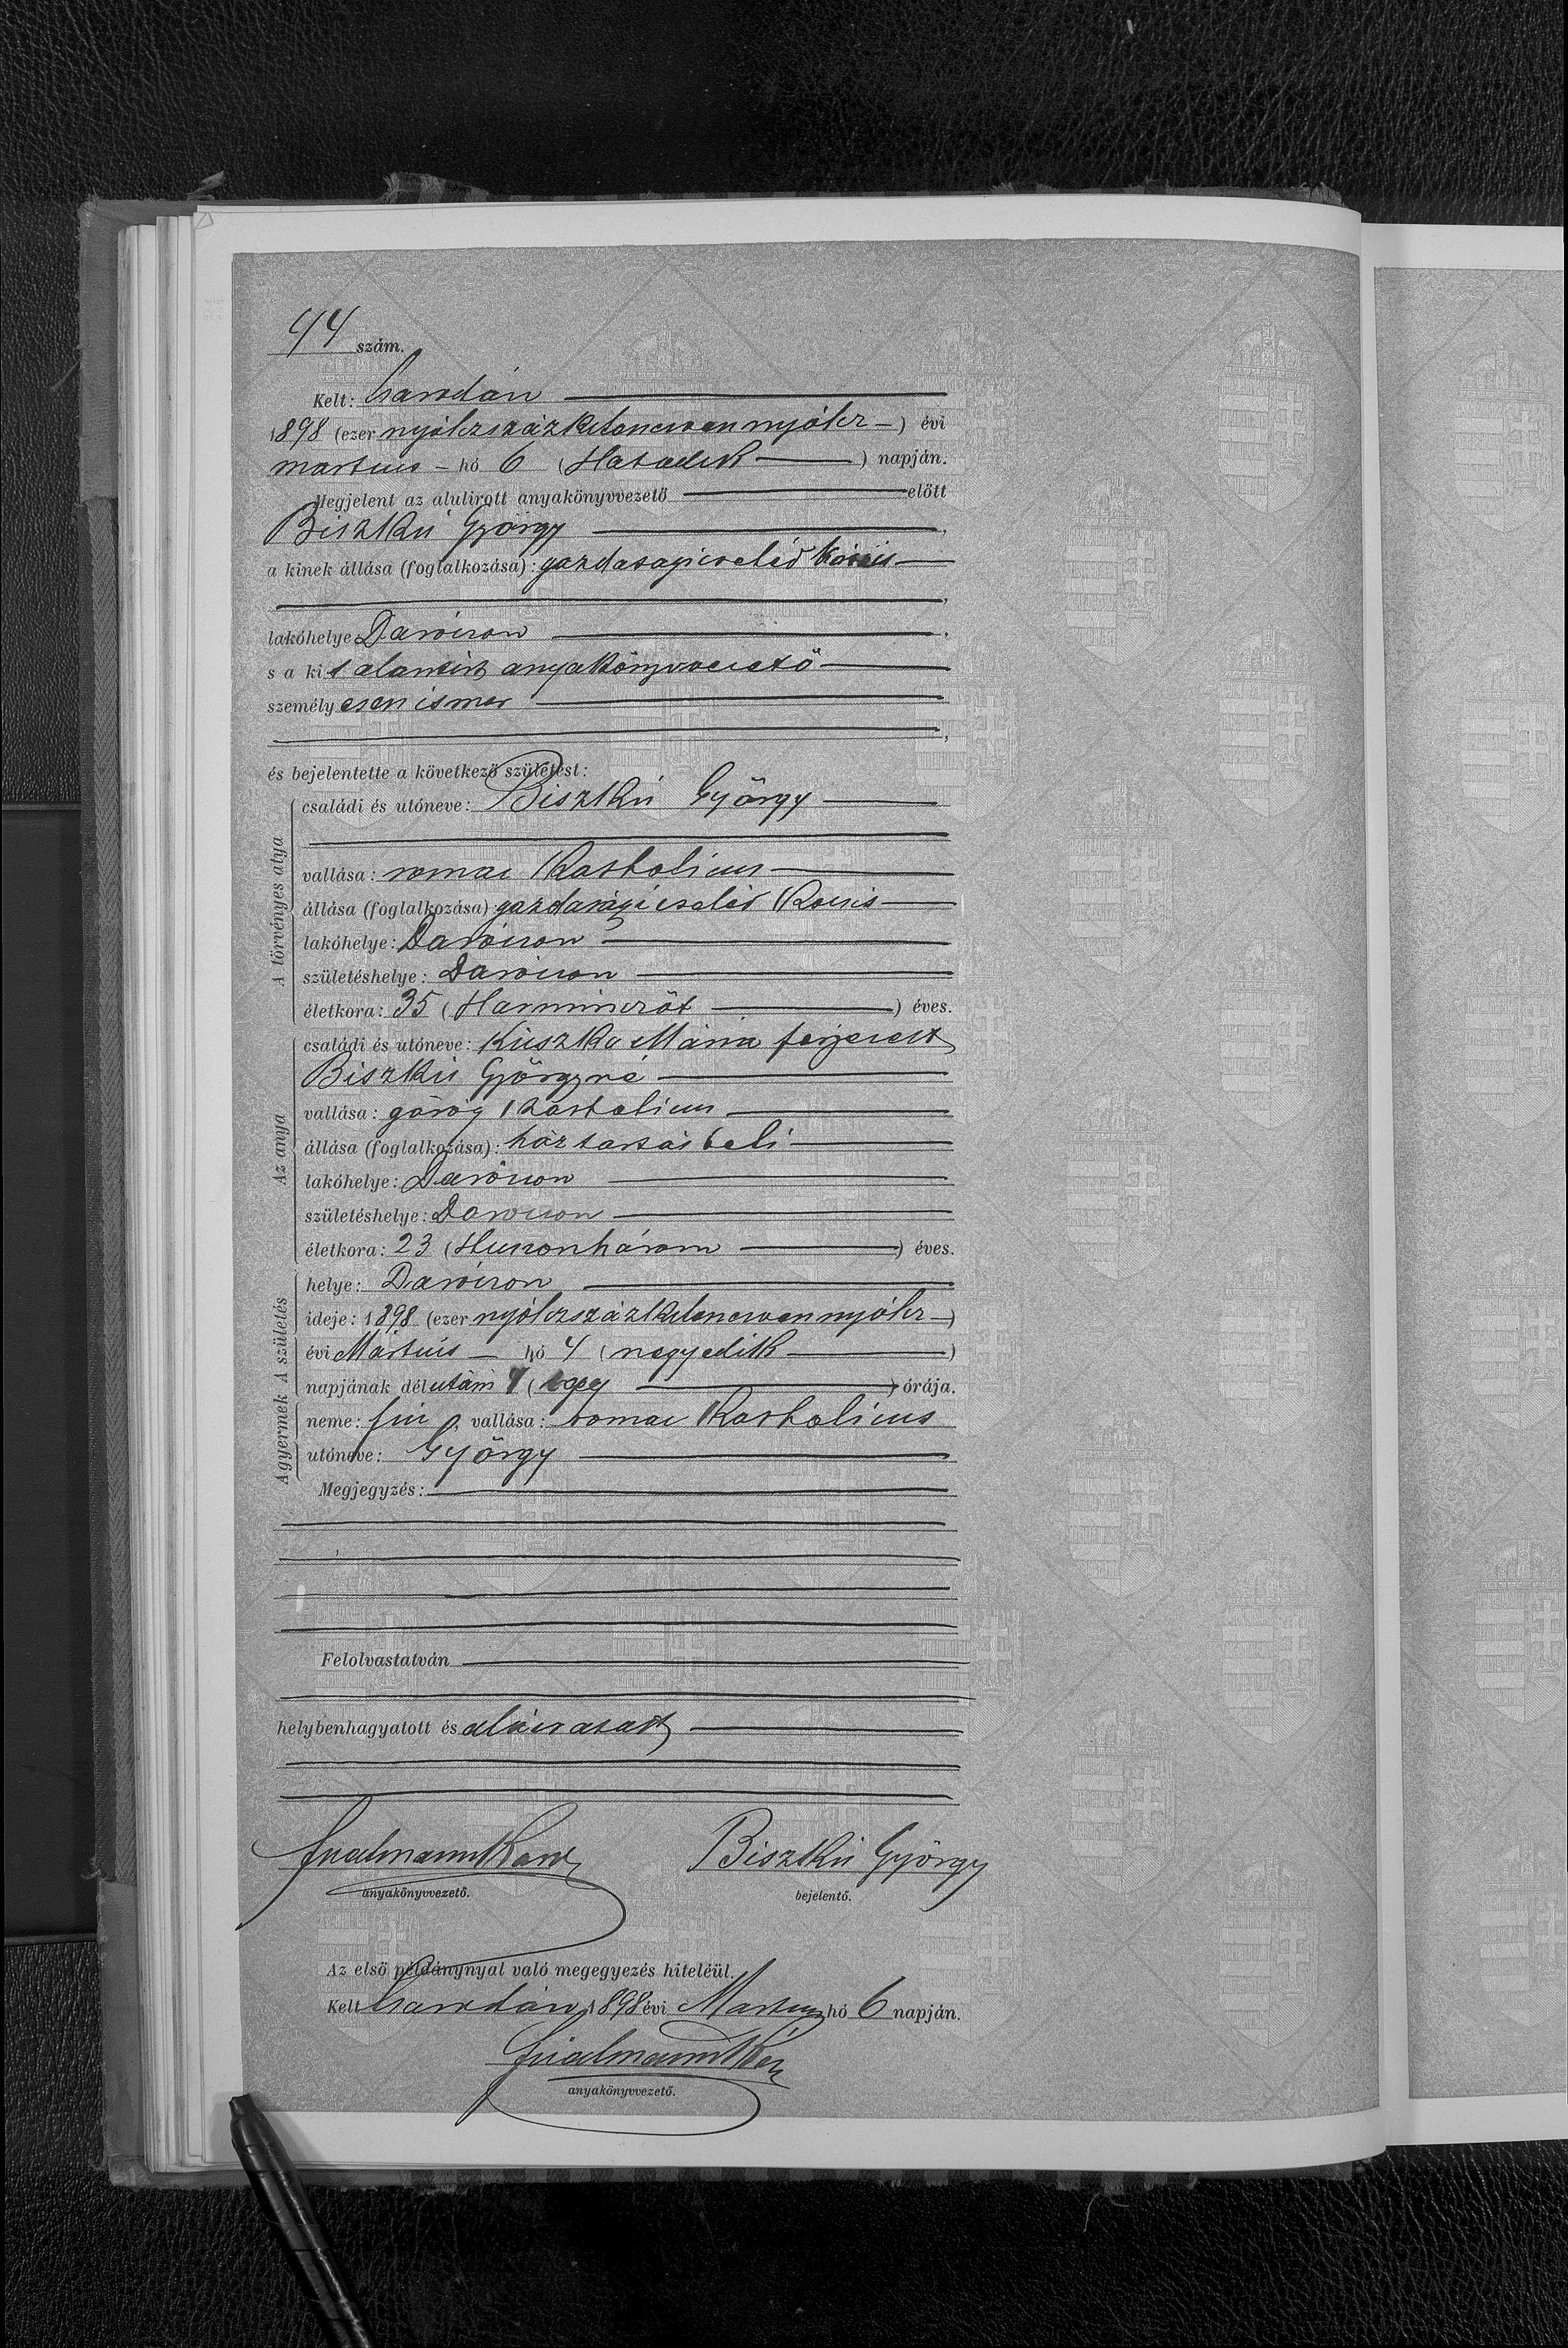 44 szám.
Kelt: Csarodán
1898 (ezer nyólczszázkilenczvennyólcz) évi
martius hó 6 (Hatodik) napján.
Megjelent az alulirott anyakönyvvezető előtt
Biszkú György,
a kinek állása (foglalkozása): gazdasagicseléd kocsis
lakóhelye Daróczon
s a kit alantirt anyakönyvvezető
személyesen ismer
és bejelentette a következő születést:
A törvényes atya
családi és utóneve: Biszkú György
vallása: romai Katholicus
állása (foglalkozása): gazdaságicseléd Kocsis
lakóhelye: Daróczon
születéshelye: Daróczon
életkora: 35 (Harminczöt) éves.
Az anya
családi és utóneve: Kiszka Mária férjezett
Biszkú Györgyné
vallása: görög Katholicus
állása (foglalkozása): háztartásbeli
lakóhelye: Daróczon
születéshelye: Daroczon
életkora: 23 (Huszonhárom) éves.
A születés
helye: Daróczon
ideje: 1898 (ezer nyólczszázkilenczvennyólcz)
évi Mártius hó 4 (negyedik)
napjának délutáni (egy) órája.
A gyermek
neme: fiú, vallása: romai Katholicus
utóneve: György
Megjegyzés:
Felolvastatván
helybenhagyatott és aláiratatt
anyakönyvvezető.
Biszkú György
bejelentő.
Az első példánynyal való megegyezés hiteléül.
Kelt Csarodán, 1898 évi Martius hó 6 napján.
anyakönyvvezető.